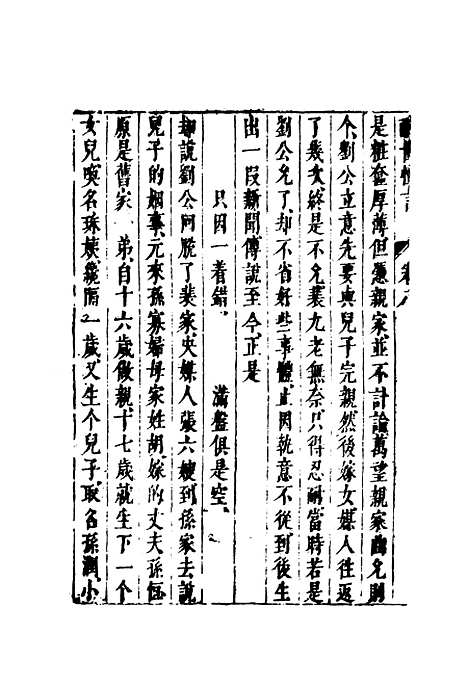 醒世恒言 卷八
是粧奩厚薄但憑親家並不計論萬望親家曲允則
个劉公立意先要與兒子完親然後嫁女媒人往返
了幾次終是不允裴九老無奈只得忍耐當時若是
劉公允了却不省好些事體止因執意不從到後生
出一段新聞傳說至今正是
只因一着錯 滿盤俱是空
却說劉公回脫了裴家央媒人張六嫂到孫家去說
兒子的姻事元來孫寡婦母家姓胡嫁的丈夫孫恒
原是舊家 弟自十六歲做親十七歲就生下一个
女兒喚名珠姨纔隔一歲又生个兒子取名孫潤小